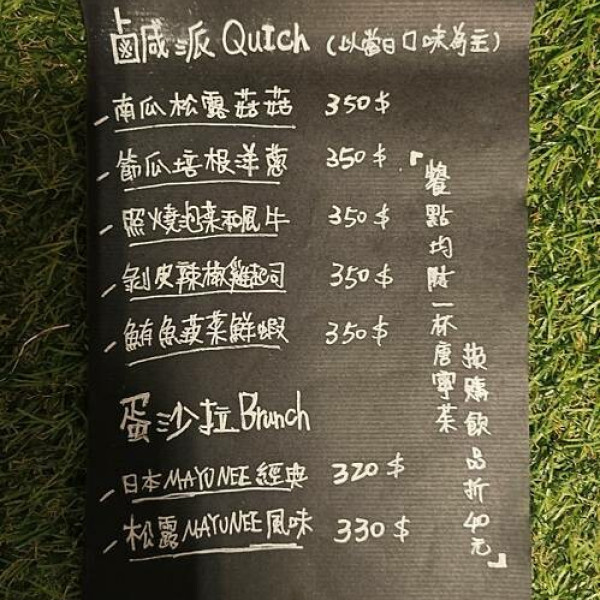 鹹派 Quich (以當日口味為主)
南瓜松露菇菇 350$
節瓜培根洋蔥 350$
照燒泡菜和風牛 350$
剝皮辣椒雞起司 350$
鮪魚菠菜鮮蝦 350$
蛋沙拉 Brunch
日本MAYONEE經典 320$
松露MAYONEE風味 330$
『餐點均附一杯唐寧茶
換購飲品折40元』